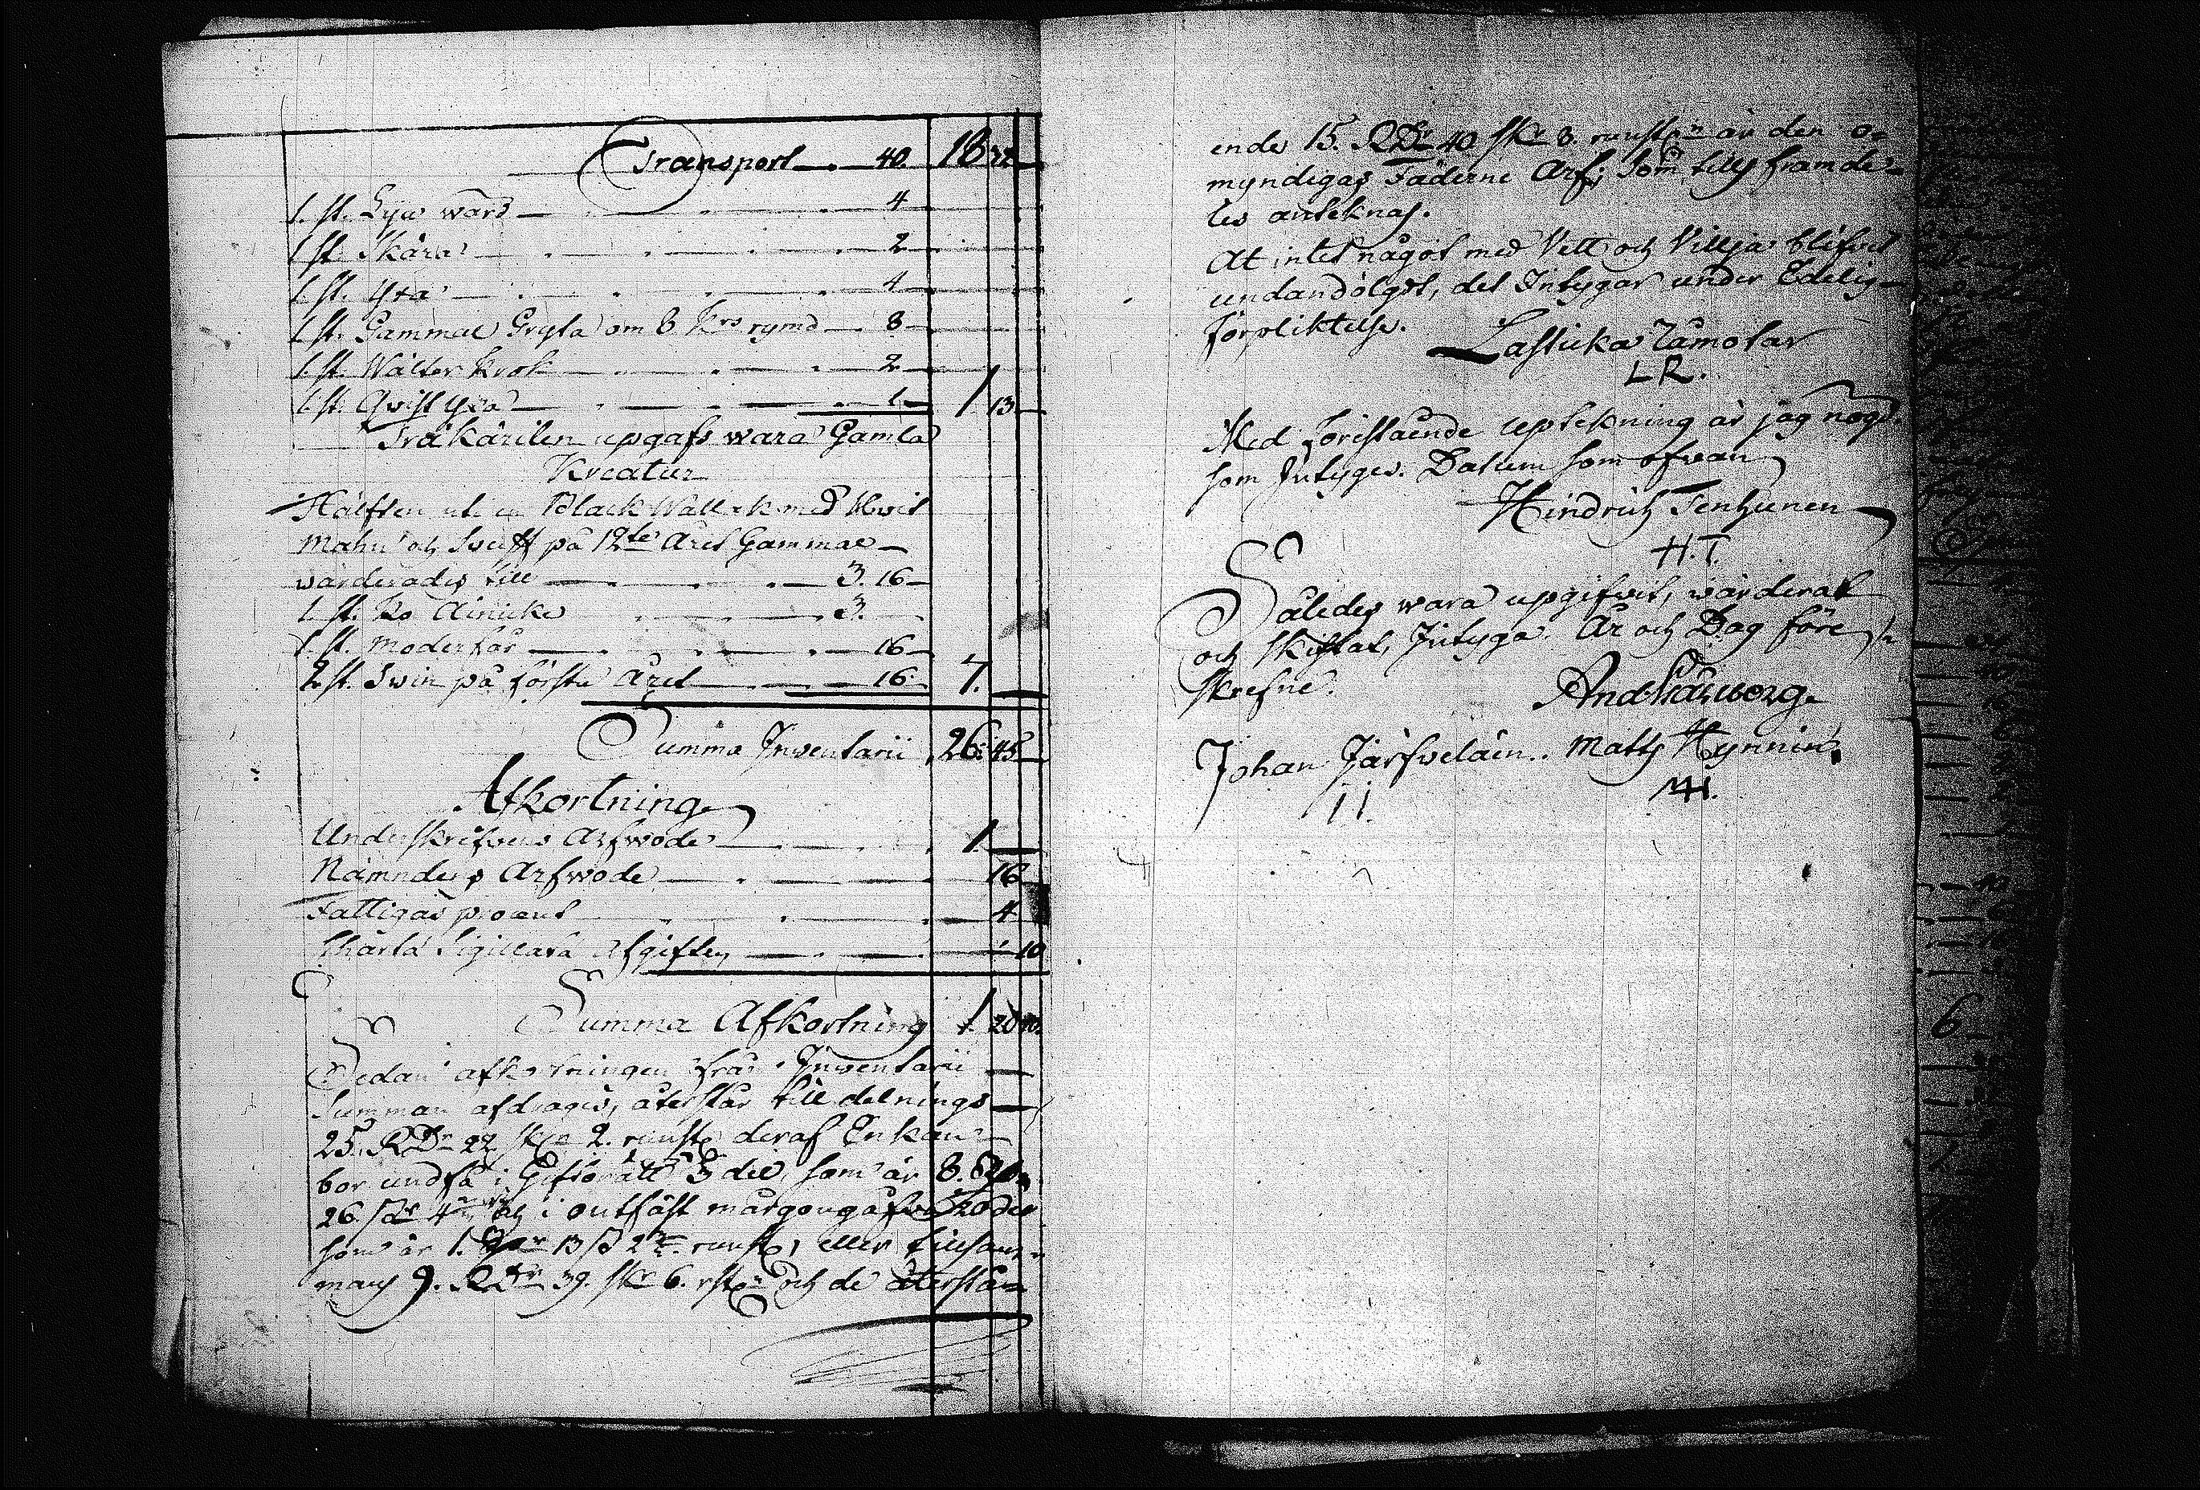 Transport 40. 18 32
1. st. Lyw ward 4
1 st. Skära 2
1. st. Yxa 4
1. st. Gammal Gryta om 8 k:rs rymd 8
1. st. Walter krok 2
1. st. Qwist Yxa 1 1. 13
Träkärilen upgafs wara Gamla
Kreatur
Hälften uti en Black Wallak med Hwit
Mahn och Swuff på 12te Året Gammal
warderades till 3. 16
1. st. Ko Ainicke 3.
1. st. Moderfår 16
2. st. Swin på första Året 16 7.
Summa Inwentarii 26. 45
Afkortning
Underskrifvens Arfwode 1.
Nämndens Arfwode 16
Fattigas procent 4
Charta Sigillata afgiften 10
Summa Afkortning 1. 20 10.
Sedan afkortningen från Inwentarii
Summan afdragis, återstår till delnings
25. RDr 22 sk 2. runst. deraf Enkan
bör undfå i Giftorätt ⅓ del, som är 8.
26. 4 och i outfäst morgongåfwa 1/20 del
som är 1. 13 ß 2 runst, eller tillsam-
mans 9. RDr 39. sk 6. rst och de återstå-
ende 15. RDr 40 sk 8. runst är den o-
myndigas Fäderne Arf; som till framde-
les anteknas.
At intet något med Vett och Villja blifvit
undandölgt, det Intygar under Edelig
förpliktelse. Lasticka Råmotar
L R.
Med föreståénde uptekning är jag nögd
som Intyges. Datum som ofwan
Hindrich Tenhunen
H. T.
Således wara upgifwit, wärderat
och skiftat, Intyga. År och Dag före
skrefne.
Johan Järfveläin. Matts Hynnin
I I. MH.